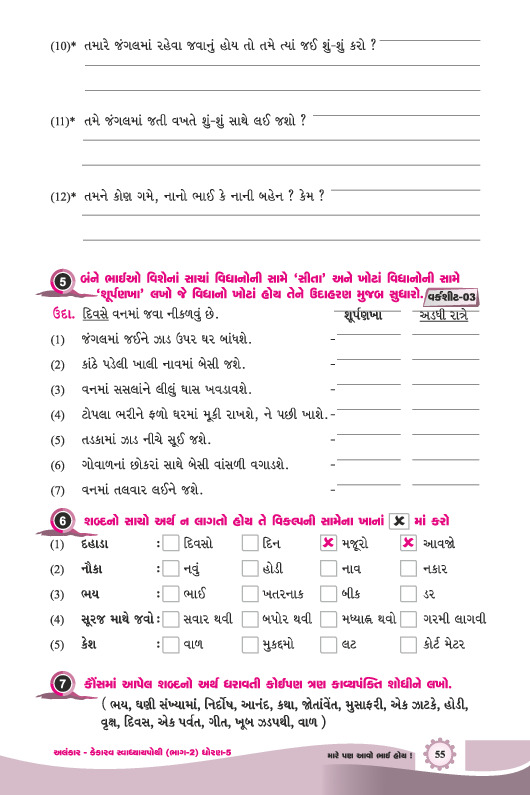 (10)* તમારે જંગલમાં રહેવા જવાનું હોય તો તમે ત્યાં જઈ શું-શું કરો ?
(11)* તમે જંગલમાં જતી વખતે શું-શું સાથે લઈ જશો ?
(12)* તમને કોણ ગમે, નાનો ભાઈ કે નાની બહેન ? કેમ ?
5 બંને ભાઈઓ વિશેનાં સાચાં વિધાનોની સામે ‘સીતા’ અને ખોટાં વિધાનોની સામે
‘શૂર્પણખા’ લખો જે વિધાનો ખોટાં હોય તેને ઉદાહરણ મુજબ સુધારો. વર્કશીટ-03
ઉદા. દિવસે વનમાં જવા નીકળવું છે. શૂર્પણખા અડધી રાત્રે
(1) જંગલમાં જઈને ઝાડ ઉપર ઘર બાંધશે. -
(2) કાંઠે પડેલી ખાલી નાવમાં બેસી જશે. -
(3) વનમાં સસલાંને લીલું ઘાસ ખવડાવશે. -
(4) ટોપલા ભરીને ફળો ઘરમાં મૂકી રાખશે, ને પછી ખાશે. -
(5) તડકામાં ઝાડ નીચે સૂઈ જશે. -
(6) ગોવાળનાં છોકરાં સાથે બેસી વાંસળી વગાડશે. -
(7) વનમાં તલવાર લઈને જશે. -
6 શબ્દનો સાચો અર્થ ન લાગતો હોય તે વિકલ્પની સામેના ખાનાં × માં કરો
(1) દહાડા : દિવસો દિન × મજૂરો × આવજો
(2) નૌકા : નવું હોડી નાવ નકાર
(3) ભય : ભાઈ ખતરનાક બીક ડર
(4) સૂરજ માથે જવો : સવાર થવી બપોર થવી મધ્યાહ્ન થવો ગરમી લાગવી
(5) કેશ : વાળ મુકદ્દમો લટ કોર્ટ મેટર
7 કૌંસમાં આપેલ શબ્દનો અર્થ ધરાવતી કોઈપણ ત્રણ કાવ્યપંક્તિ શોધીને લખો.
( ભય, ઘણી સંખ્યામાં, નિર્દોષ, આનંદ, કથા, જોતાંવેંત, મુસાફરી, એક ઝાટકે, હોડી,
વૃક્ષ, દિવસ, એક પર્વત, ગીત, ખૂબ ઝડપથી, વાળ )
અલંકાર - કેકારવ સ્વાધ્યાયપોથી (ભાગ-2) ધોરણ-5 મારે પણ આવો ભાઈ હોય ! 55